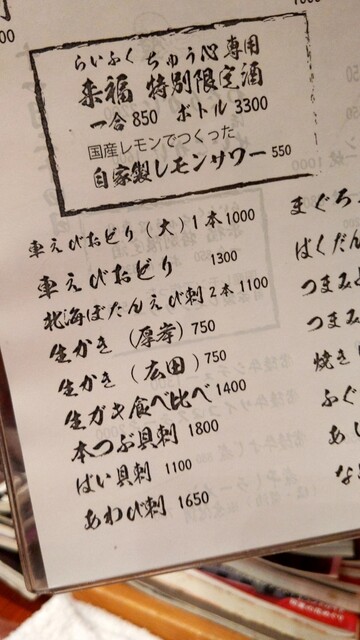 らいふく ちゅう心 専用
来福 特別限定酒
一合 850 ボトル 3300
国産レモンでつくった
自家製レモンサワー 550
車えびおどり (大) 1本 1000
車えびおどり 1300
北海ぼたんえび刺 2本 1100
生かき (厚岸) 750
生かき (広田) 750
生ガキ食べ比べ 1400
本つぶ貝刺 1800
ばい貝刺 1100
あわび刺 1650
まぐろ
はくだ
つまみ
つまみ
焼き
ふぐ
あし